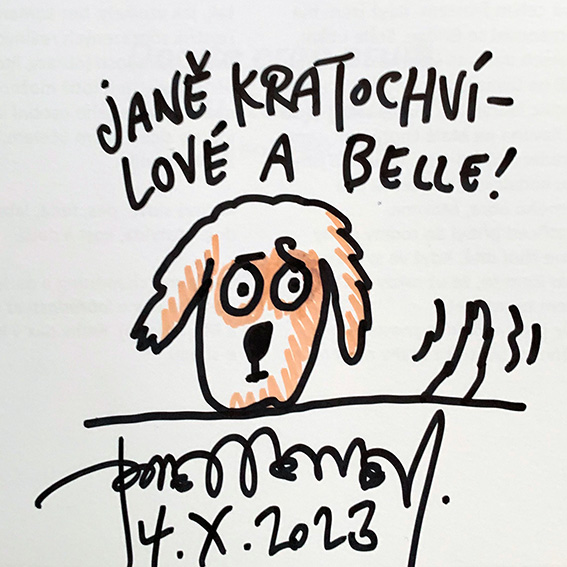 JANĚ KRATOCHVÍ-
LOVÉ A BELLE!
4.X.2023